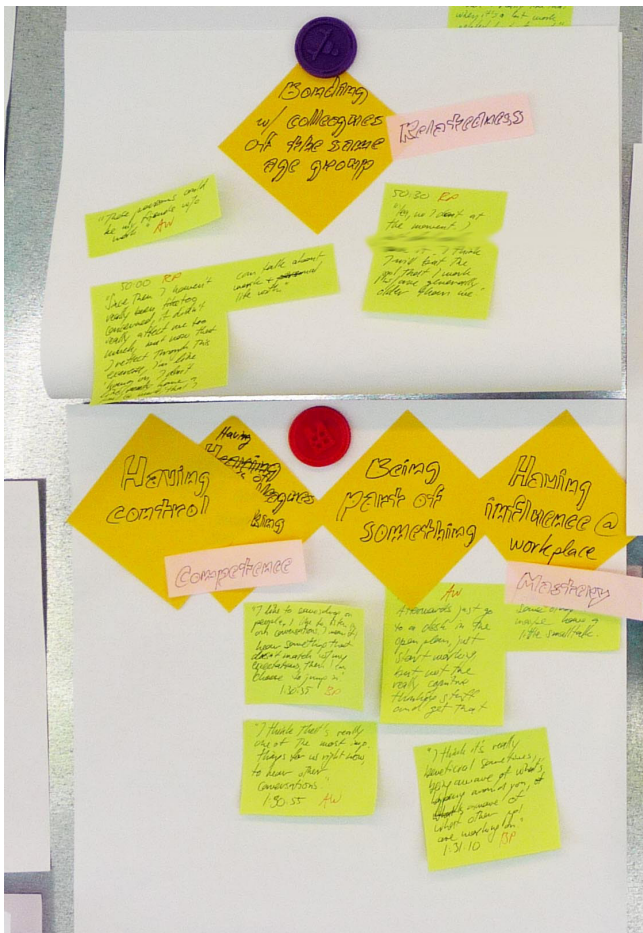 when it's a bit more
Bonding
w/ colleagues
of the same
age group
Relatedness
"These persons could
be my friends w/o
work." AW
50:30 RP
"No, no I don't at
the moment. I
it. I think
I will find the
ppl that I work
are generally
older than me."
50:00 RP
"Since then I haven't
really been
concerned, it didn't
really affect me too
much, but now that
I reflect through this
exercise, I'm like
I don't
can talk about
work +
life with."
Having
control
Having
colleagues
Being
part of
something
Having
influence @
workplace
Competence
Mastery
"I like to eavesdrop on
people, I like to listen
conversations. I mean if I
hear something that
doesn't match my
expectations, then I can
choose to jump in"
1:30:35 BP
AW
Afterwards just go
to a desk in the
open plan, just
start working
but not the
really cognitive
thinking stuff
and get that
maybe having a
little smalltalk.
"I think that's really
one of the most imp.
things for us right now
to hear other
conversations."
1:30:55 AW
"I think it's really
beneficial sometimes,
being aware of what's
happening around you,
aware of
what other ppl
are working on."
1:31:10 BP